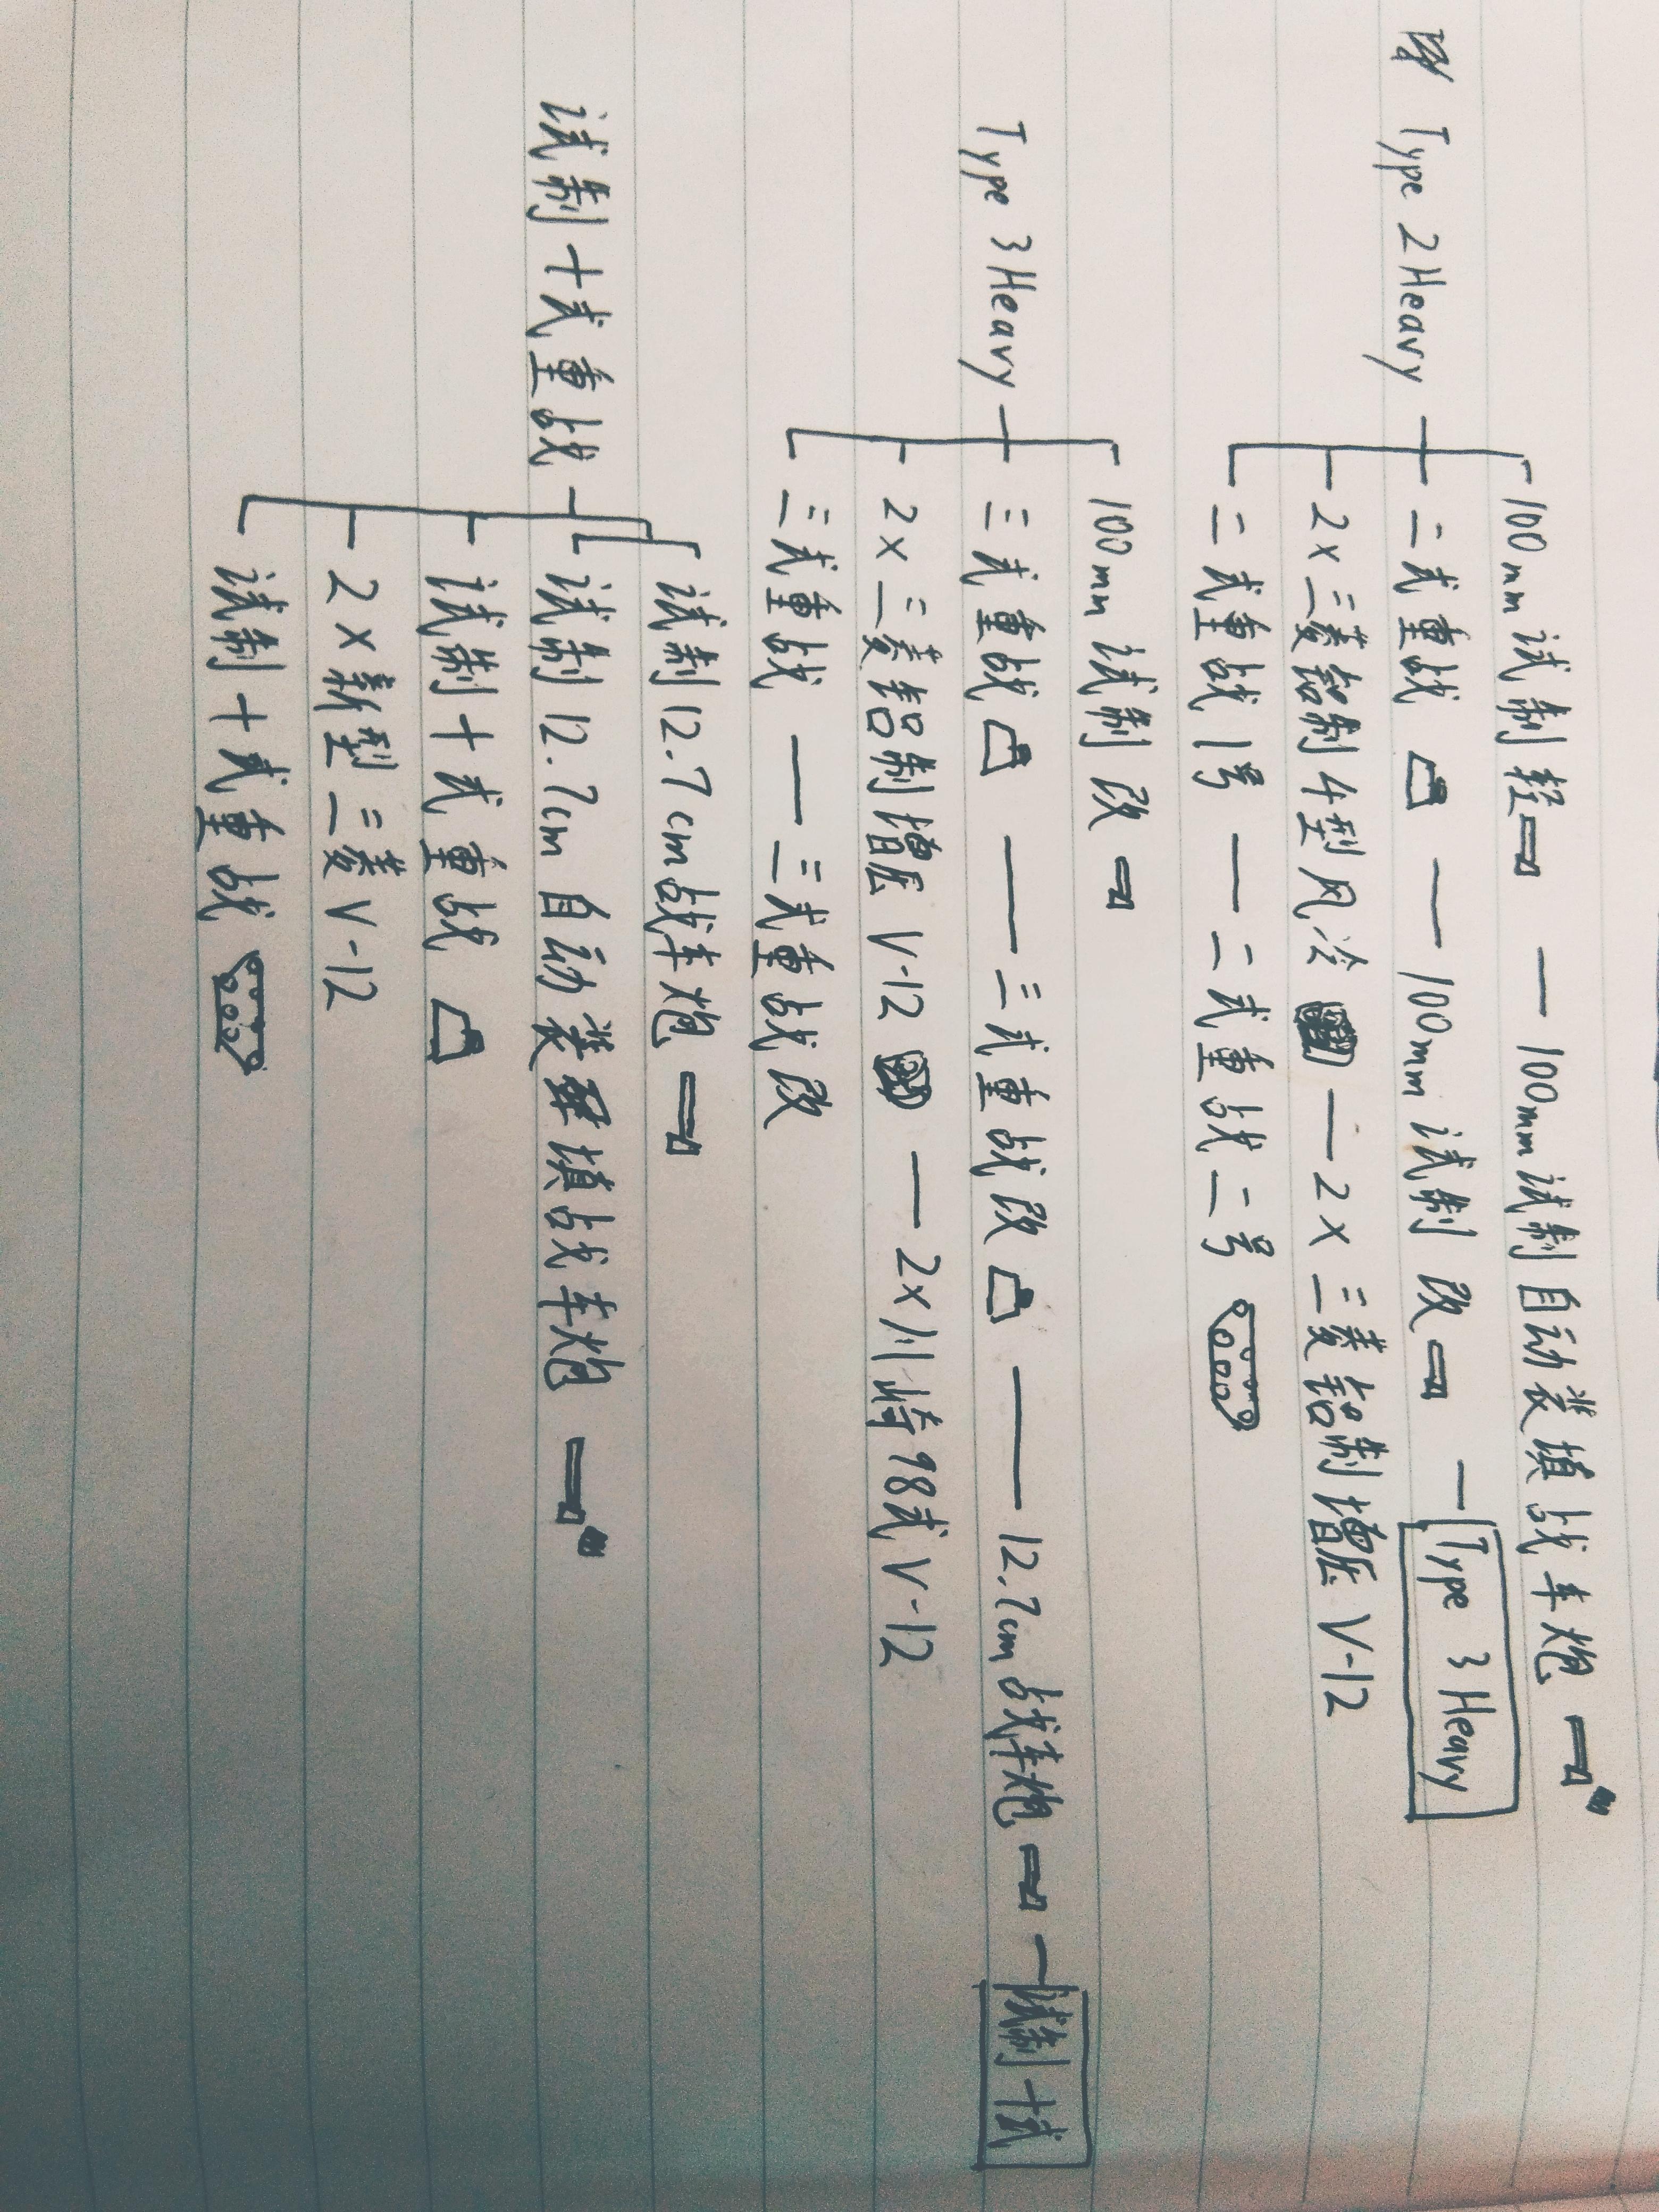 100mm 试制 轻 — 100mm 试制自动装填战车炮
Type 2 Heavy 二式重战 — 100mm 试制 改 — Type 3 Heavy
2×三菱铝制4型风冷 — 2×三菱铝制增压 V-12
二式重战 1号 — 二式重战 二号
100mm 试制 改
Type 3 Heavy 三式重战 — 三式重战改 — 12.7cm战车炮 — 试制十式
2×三菱铝制增压 V-12 — 2×川崎98式 V-12
三式重战 — 三式重战改
试制12.7cm战车炮
试制十式重战 试制12.7cm自动装填战车炮
试制十式重战
2×新型三菱V-12
试制十式重战